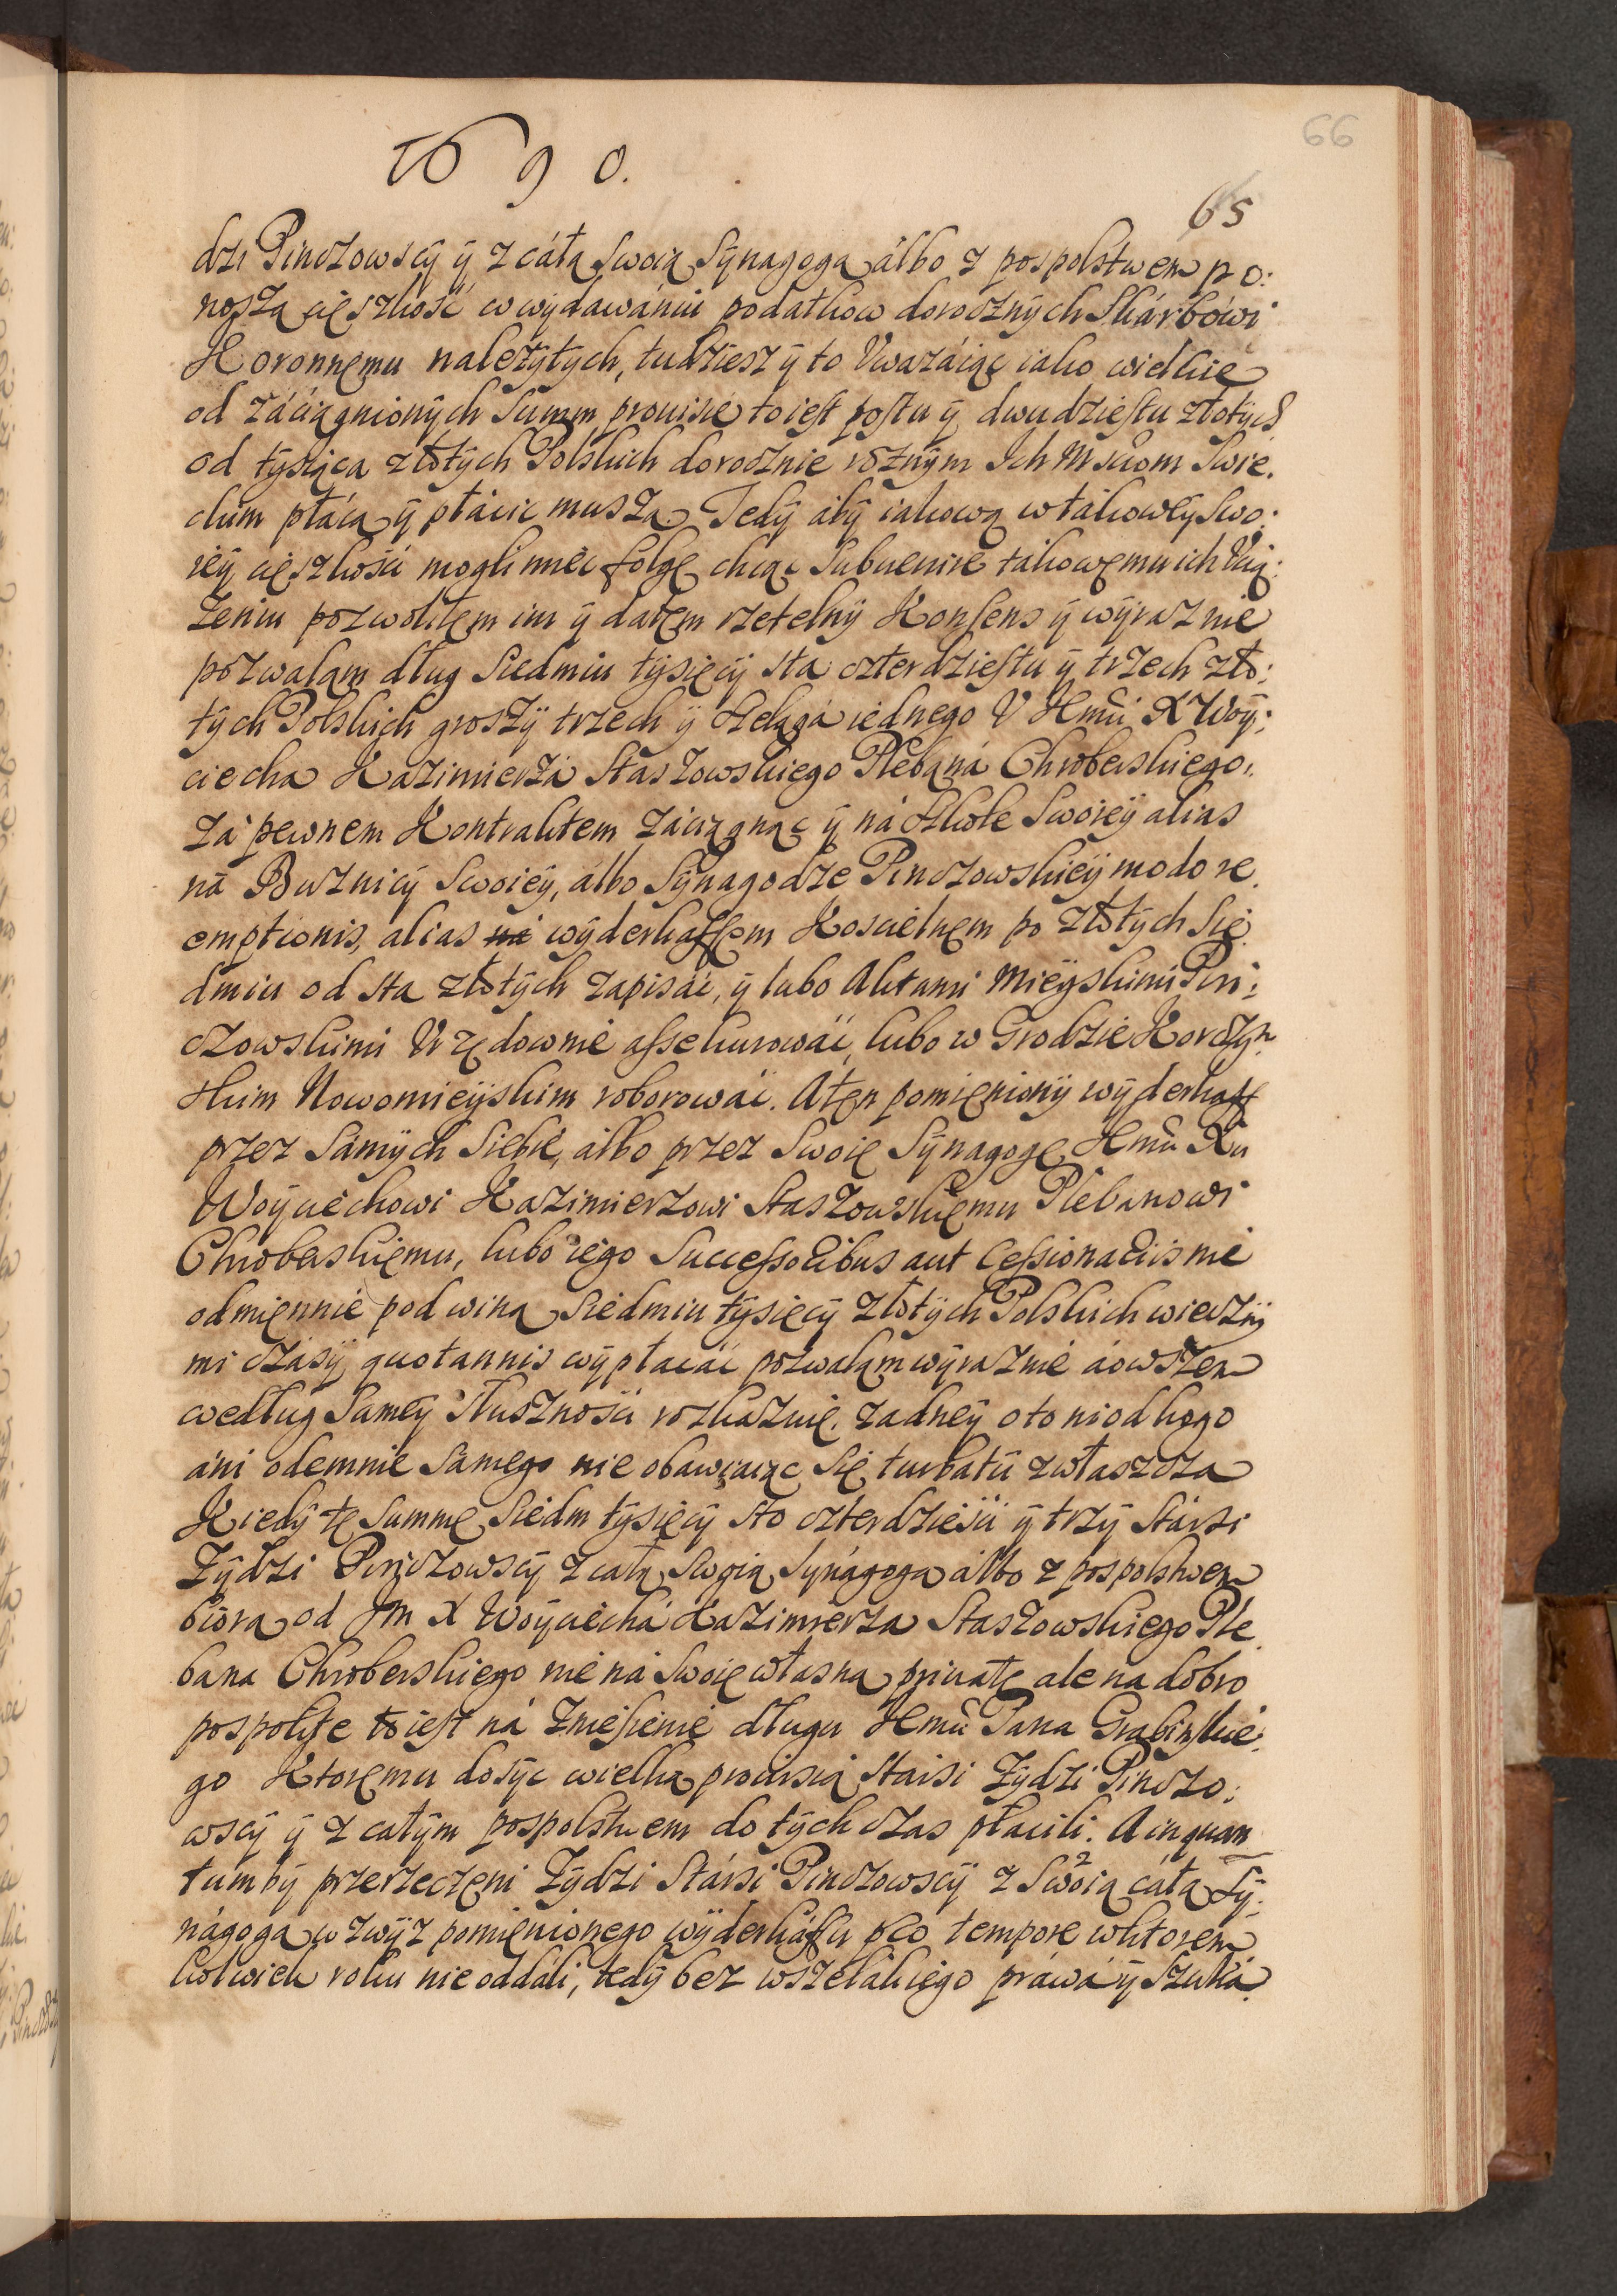 66
1690.
65
dzi Pinczowscÿ ÿ z cáłą Swoią Sÿnagogą álbo z pospolstwem po:
noszą cięszkość w wÿdawániu podatkow dorocznÿch Skárbowi
Koronnęmu należÿtÿch, tudziesz ÿ to Vważáiąc iako wielkie
od záciągnionÿch Summ prouisie to iest po stu ÿ dwudziestu złotÿch
od tÿsiąca złotÿch Polskich dorocznie roznÿm Ich Mściom Swie.
ckim płácą ÿ płácic muszą. Tedÿ ábÿ iakową w tákowéÿ Swo:
ieÿ cięszkości mogli mieć folgę chcąc Subuenire tákowęmu ich Vcią:
żeniu pozwoliłem im ÿ dałem rzetelnÿ Konsens ÿ wÿraznie
pozwalam dług Siedmiu tÿsięcÿ sta czterdziestu ÿ trzech zło:
tÿch Polskich groszÿ trzech ÿ szelągá iednego V Jemci X Woÿ:
ciecha Kazimierzá Staszowskiego Plebaná Chroberskiego,
zá pewnem Kontraktem záciągnąc ÿ ná szkole Swoieÿ alias
ná Buznicÿ Swoieÿ, álbo Sÿnagodze Pinczowskieÿ modo re
emptionis, alias ná wÿderkaffem Koscielnęm po złotÿch Sie
dmiu od sta złotÿch zapisác, ÿ lubo Aktami Mieÿskimi Pin:
czowskimi Vrzędownie assekurowác, lubo w Grodzie Korczÿn
skim Nowomieÿskim roborowác. A ten pomięnionÿ wÿderkaff
przez Sámÿch Siebie, álbo przez Swoię Sÿnagogę Jemci Xu
Woÿciechowi Kazimierzowi Staszowskięmu Plebanowi
Chroberskięmu, lubo iego Successoribus aut Cessionariis nie
odmiennie pod winą Siedmiu tÿsięcÿ złotÿch Polskich wiecznÿ
mi czásÿ, quotannis wÿpłacác pozwalam wÿraznie áowszem
według Samęÿ Słusznosci roskazuię. żadneÿ o to ni od kogo
áni odemnie Sámego nie obawiaiąc Się turbatiÿ zwłaszcza
Kiedÿ tę Summę Siedm tÿsięcÿ sto czterdziesci ÿ trzÿ Stársi
Żÿdzi Pinczowscÿ z całą Swoią Sÿnágogą álbo z pospolstwem
biorą od Jm X Woÿciechá Kazimierza Staszowskiego Ple
bana Chroberskiego nie ná Swoię własną priuatę ale na dobro
pospolite to iest ná zniesienie długu Jemci Pana Grabinskie:
go Ktoręmu dosÿc wielką prouisią Starsi Żÿdzi Pinczo:
wscÿ ÿ z całÿm pospolstwem do tÿch czas płacili. A inquan
tum bÿ przerzeczęni Żÿdzi Stársi Pinczowscÿ z Swoią cáłą Sÿ:
nágogą w zwÿż pomięnionego wÿderkáffu pro tempore w ktorem
kolwiek roku nie oddáli, tedÿ bez wszelákięgo práwá ÿ szuká